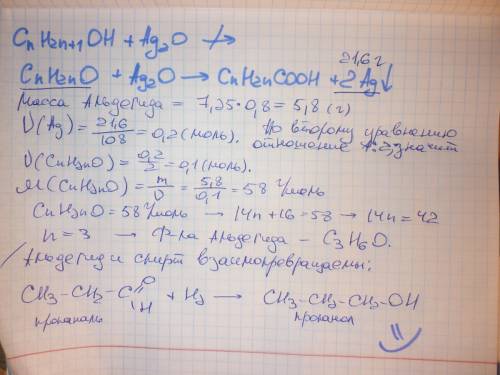 CnH2n+1OH + Ag2O ↛
21,6 г
CnH2nO + Ag2O → CnH2nCOOH + 2Ag↓
Масса альдегида = 7,25·0,8 = 5,8 (г)
ν(Ag) = 21,6/108 = 0,2 (моль). По второму уравнению
отношение 1:2, значит
ν(CnH2nO) = 0,2/2 = 0,1 (моль).
M(CnH2nO) = m/ν = 5,8/0,1 = 58 г/моль
CnH2nO = 58 г/моль → 14n + 16 = 58 → 14n = 42
n = 3 → ф-ла альдегида – C3H6O.
Альдегид и спирт взаимопревращаемы:
CH3–CH2–C(=O)H + H2 → CH3–CH2–CH2–OH
пропаналь пропанол